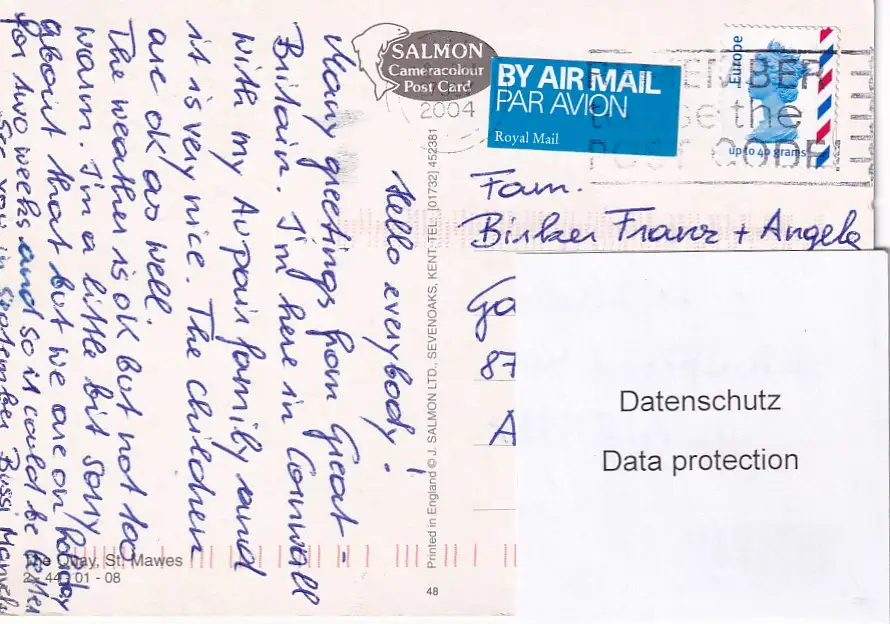 SALMON
Cameracolour
Post Card
2004
BY AIR MAIL
PAR AVION
Royal Mail
Europe
up to 40 grams
REMEMBER
the
POST CODE
Hello everybody!
Many greetings from Great-
Britain. I'm here in Cornwall
with my Aupair family and
it is very nice. The children
are ok as well.
The weather is ok but not too
warm. I'm a little bit sorry
about that but we are on holiday
for two weeks and so it could be better
See you in september Bussi Manuela
Fam.
Binker Franz + Angela
Ga
87
A
Datenschutz
Data protection
Printed in England © J. SALMON LTD., SEVENOAKS, KENT. TEL: (01732) 452381
The Quay, St. Mawes
2 - 44 01 - 08
48